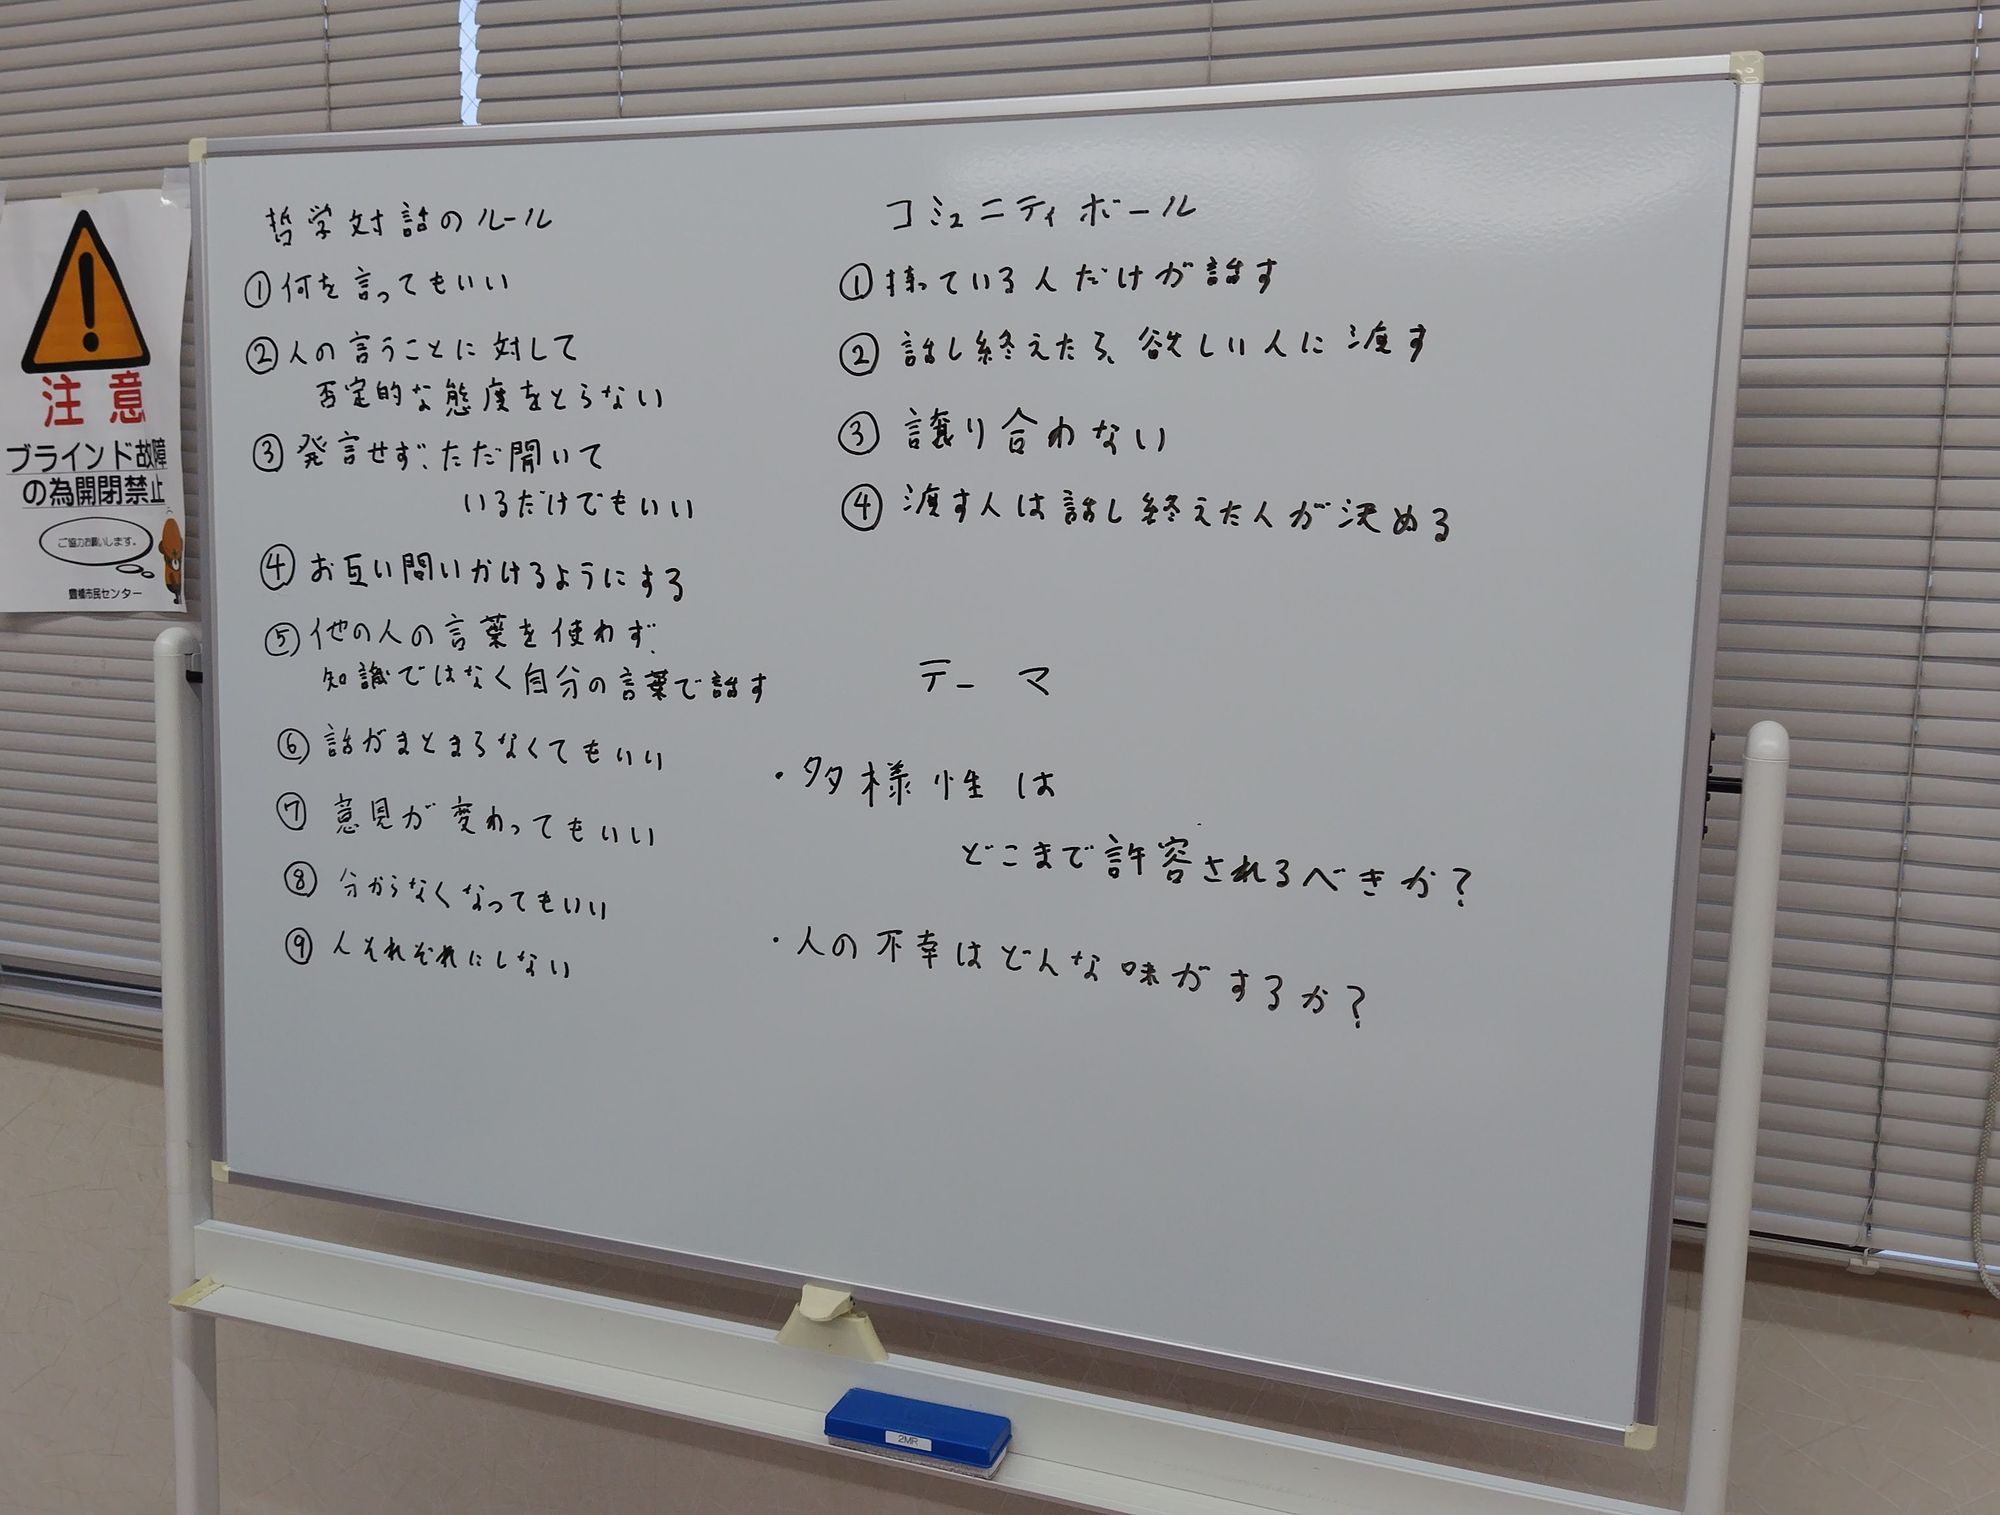 哲学対話のルール
①何を言ってもいい
②人の言うことに対して
否定的な態度をとらない
③発言せず、ただ聞いて
いるだけでもいい
④お互い問いかけるようにする
⑤他の人の言葉を使わず、
知識ではなく自分の言葉で話す
⑥話がまとまらなくてもいい
⑦意見が変わってもいい
⑧分からなくなってもいい
⑨人それぞれにしない
コミュニティボール
①持っている人だけが話す
②話し終えたら、欲しい人に渡す
③譲り合わない
④渡す人は話し終えた人が決める
テーマ
・多様性は
どこまで許容されるべきか?
・人の不幸はどんな味がするか?
注意
ブラインド故障
の為開閉禁止
ご協力お願いします。
豊橋市民センター
2MR